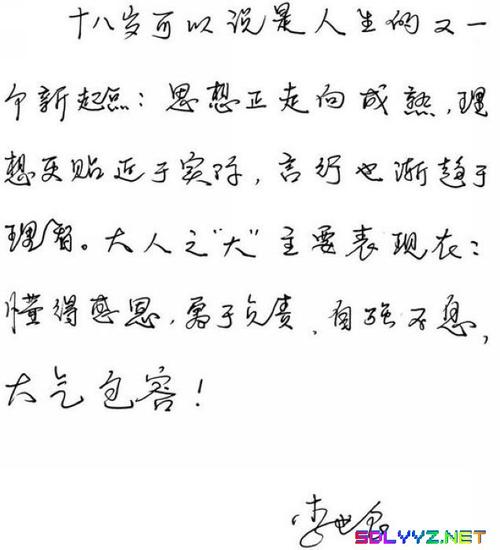 十八岁可以说是人生的又一
个新起点：思想正走向成熟，理
想更贴近于实际，言行也渐趋于
理智。大人之“大”主要表现在：
懂得感恩，勇于负责，自强不息，
大气包容！
李世
SDLYYZ.NET